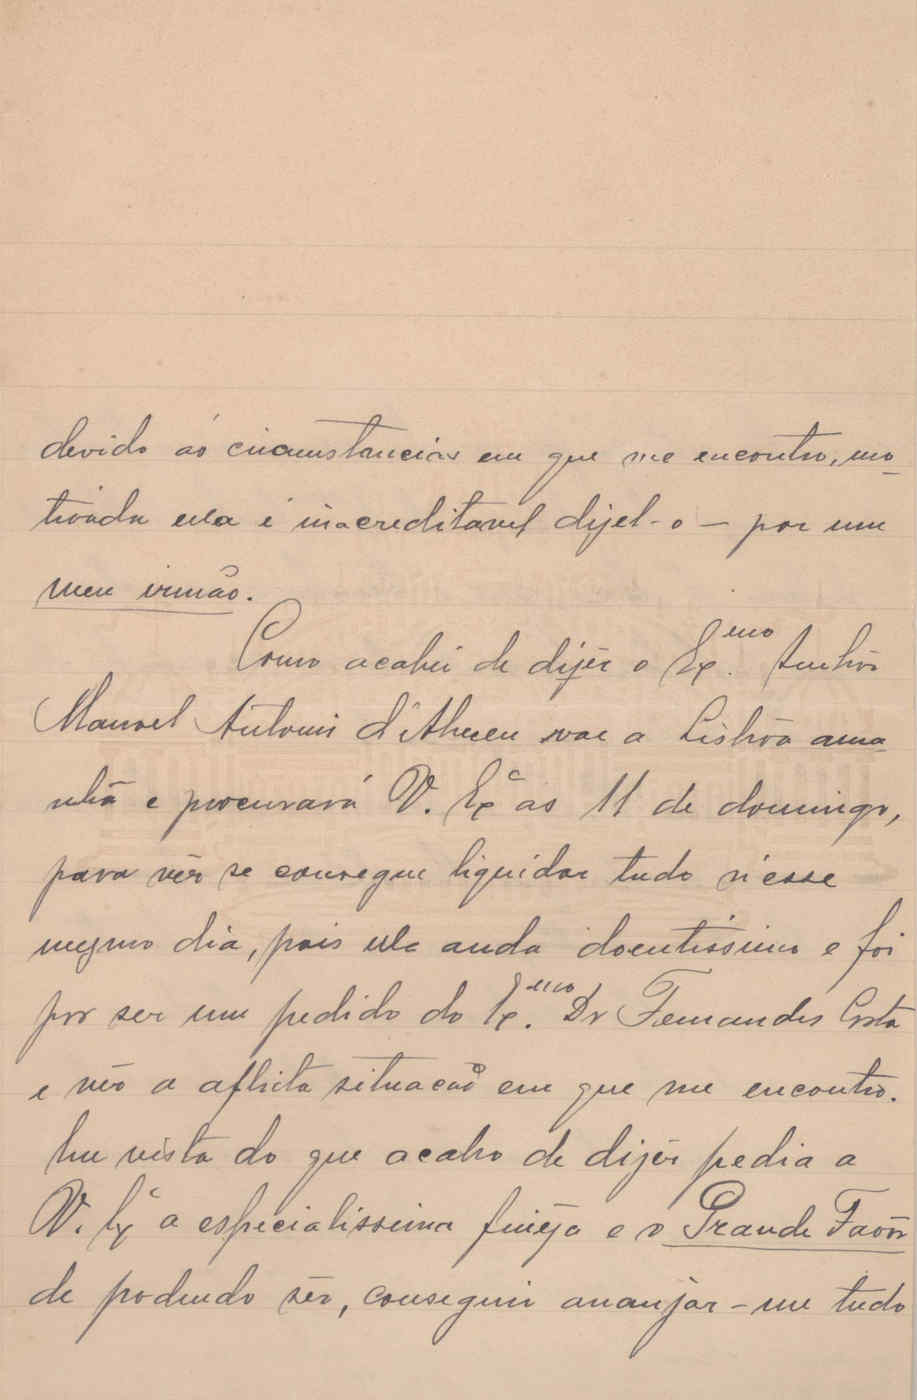 devido ás circumstancias em que me encontro, mo-
tivada ella é inacreditavel dizel-o — por um
meu irmão.
Como acabei de dizêr o Ex.mo Senhôr
Manoel Antonio d'Abreu vae a Lisbôa ama-
nhã e procurará V. Exª as 11 de domingo,
para vêr se consegue liquidar tudo n'esse
mesmo dia, pois elle anda doentissimo e foi
por ser um pedido do Ex.mo Dr Fernandes Costa
e vêr a aflicta situação em que me encontro.
Em vista do que acabo de dizêr pedia a
V. Exª a especialissima finêza e o Grande Favôr
de podendo sêr, conseguir arranjar-me tudo